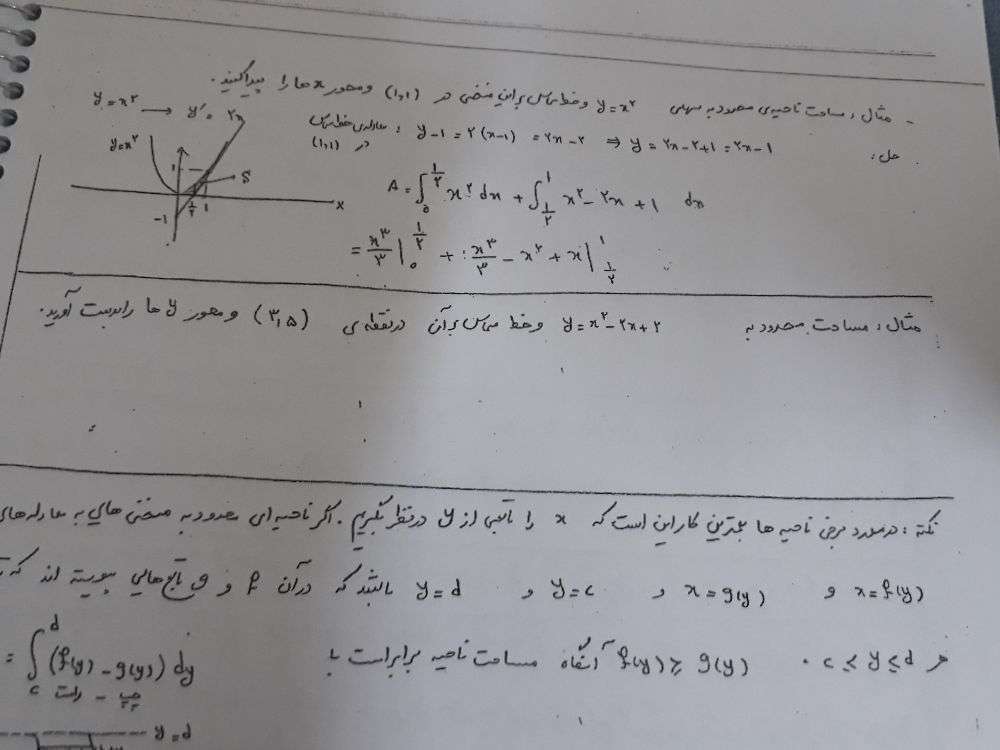 - مثال: مساحت ناحیه‌ی محدود به سهمی y = x² و خط مماس بر این منحنی در (۱,۱) و محور x ها را پیدا کنید.
حل: معادله‌ی خط مماس در (۱,۱): y-1 = ۲(x-1) = ۲x-۲ ⇒ y = ۲x-۲+1 = ۲x-1
y = x² → y′ = ۲x
y=x²
1
S
x
-1 ½ 1
A = ∫₀^½ x² dx + ∫_½^1 x² - ۲x + 1 dx
= x³/۳ |₀^½ + x³/۳ - x² + x |_½^1
مثال: مساحت محدود به y = x² - ۲x + ۲ و خط مماس بر آن در نقطه‌ی (۳,۵) و محور y ها را بدست آورید.
نکته: در مورد برخی ناحیه ها بهترین کار این است که x را تابعی از y در نظر بگیریم. اگر ناحیه ای محدود به منحنی هایی به معادله های
x = f(y) و x = g(y) و y = c و y = d باشد که در آن f و g تابع هایی پیوسته اند که
c ≤ y ≤ d. f(y) ≥ g(y) آنگاه مساحت ناحیه برابر است با
= ∫_c^d (f(y) - g(y)) dy
راست - چپ
y = d